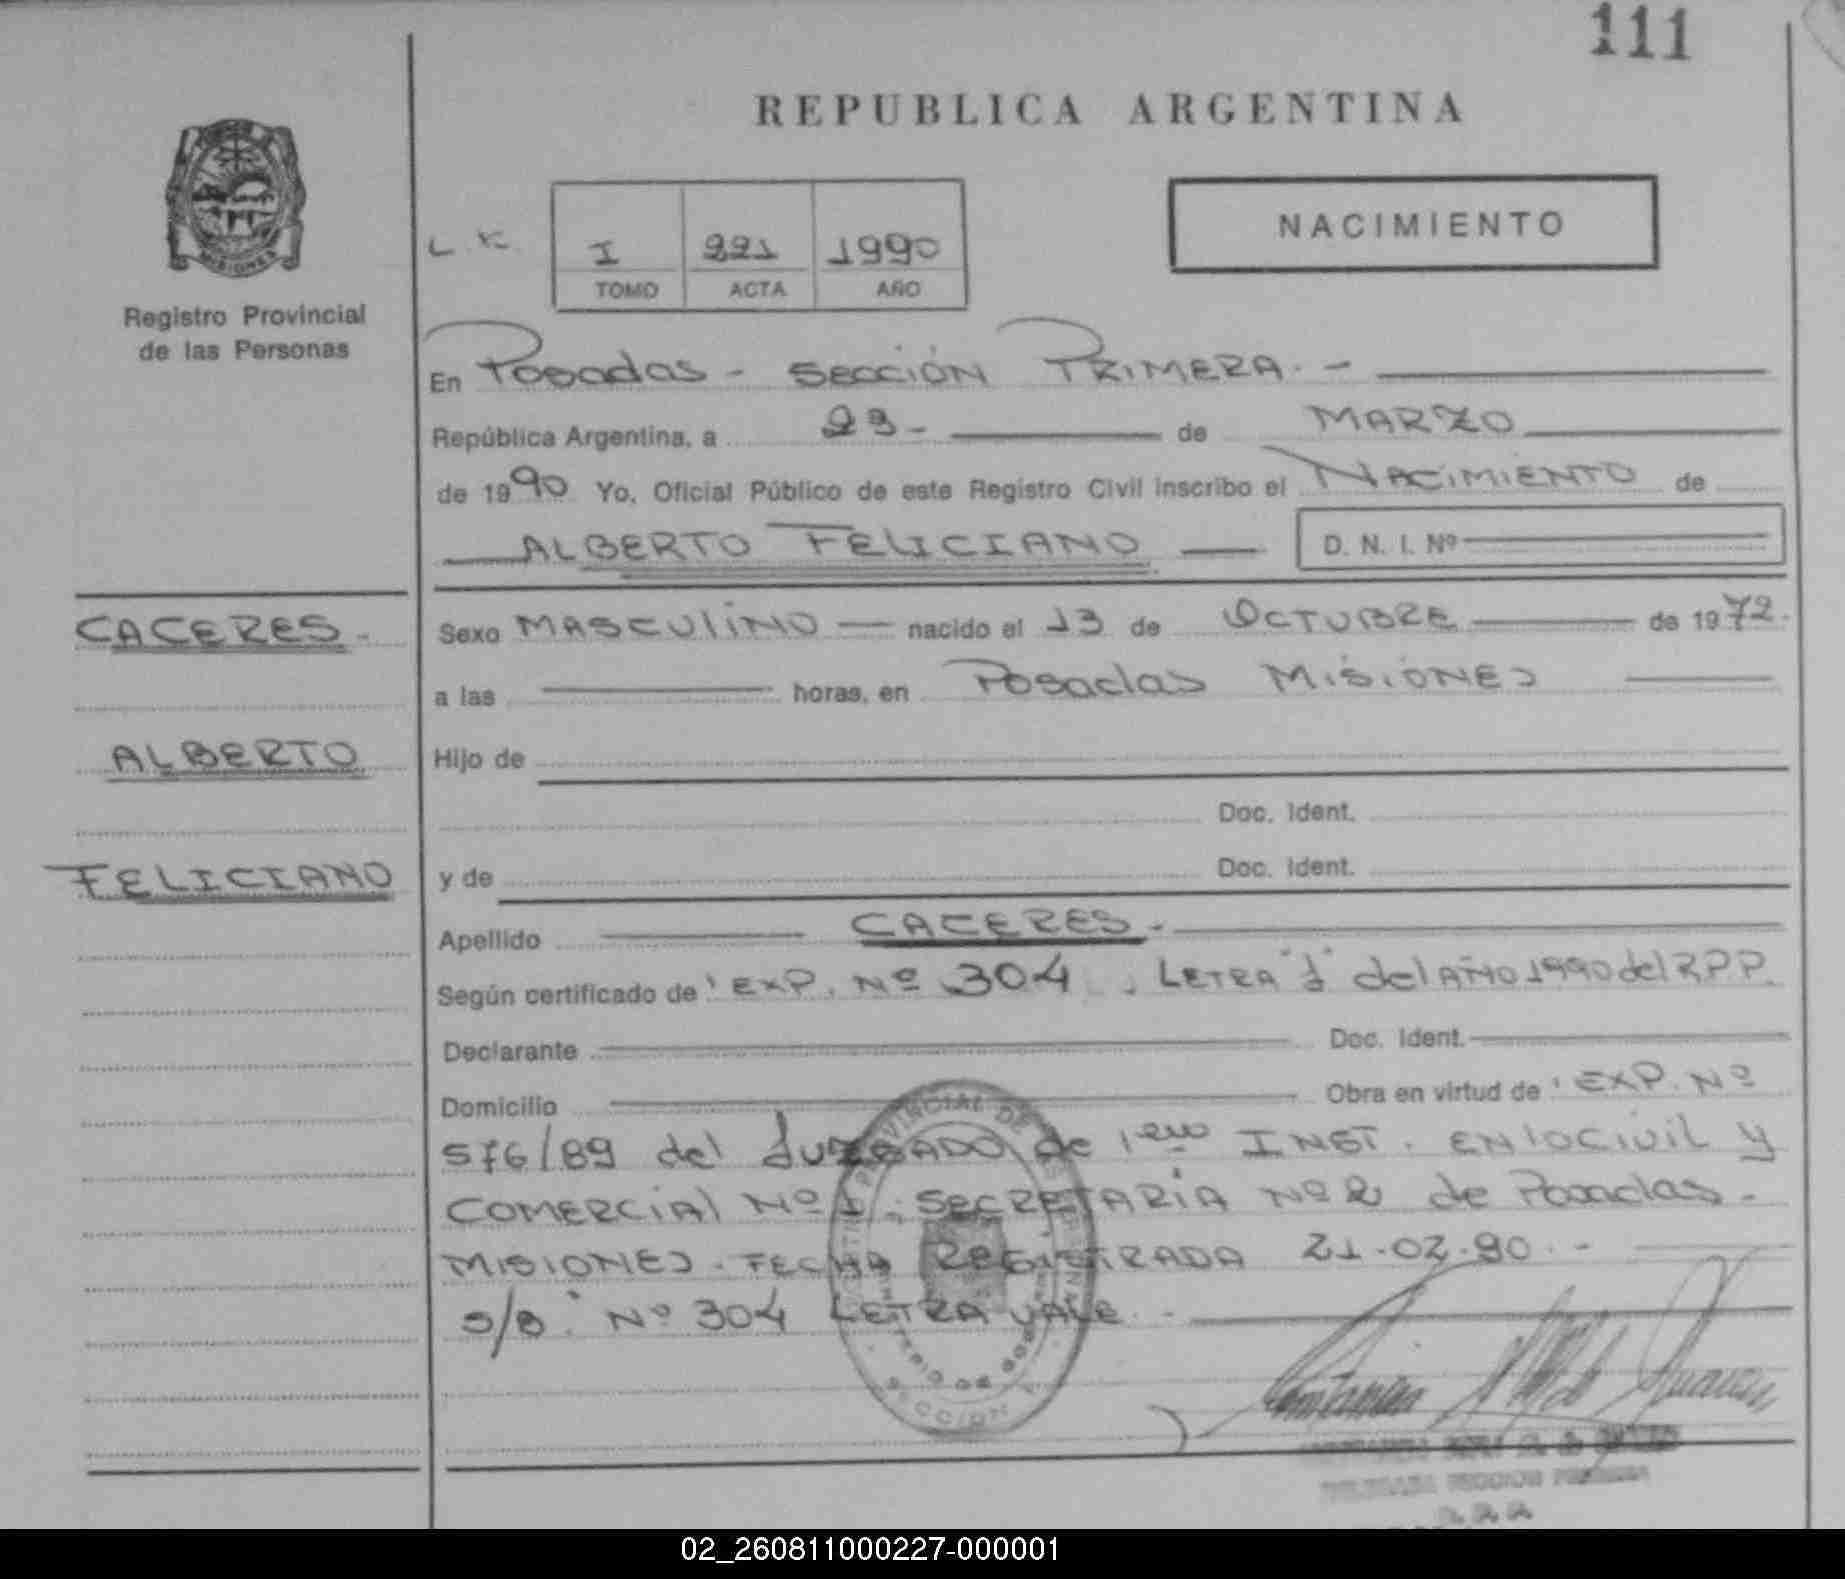 111
REPUBLICA ARGENTINA
NACIMIENTO
I 221 1990
TOMO ACTA AÑO
MISIONES
Registro Provincial
de las Personas
En Posadas - SECCIÓN PRIMERA. -
República Argentina, a 23- de MARZO
de 1990 Yo, Oficial Público de este Registro Civil inscribo el NACIMIENTO de
ALBERTO FELICIANO D. N. I. Nº
CACERES.-
Sexo MASCULINO nacido el 13 de OCTUBRE de 1972.
a las horas, en Posadas MISIONES
ALBERTO
Hijo de
Doc. Ident.
FELICIANO
y de Doc. Ident.
Apellido CACERES.-
Según certificado de EXP. Nº 304 LETRA del AÑO 1990 del R.P.P.
Declarante Doc. Ident.
Domicilio Obra en virtud de EXP. Nº
576/89 del JUZGADO de 1era INST. EN lO CIVIL Y
COMERCIAL Nº 1. SECRETARIA Nº 2 de Posadas.
MISIONES. FECHA REGISTRADA 21.02.90.-
S/B. Nº 304 LETRA VALE.-
SECCION
02_260811000227-000001